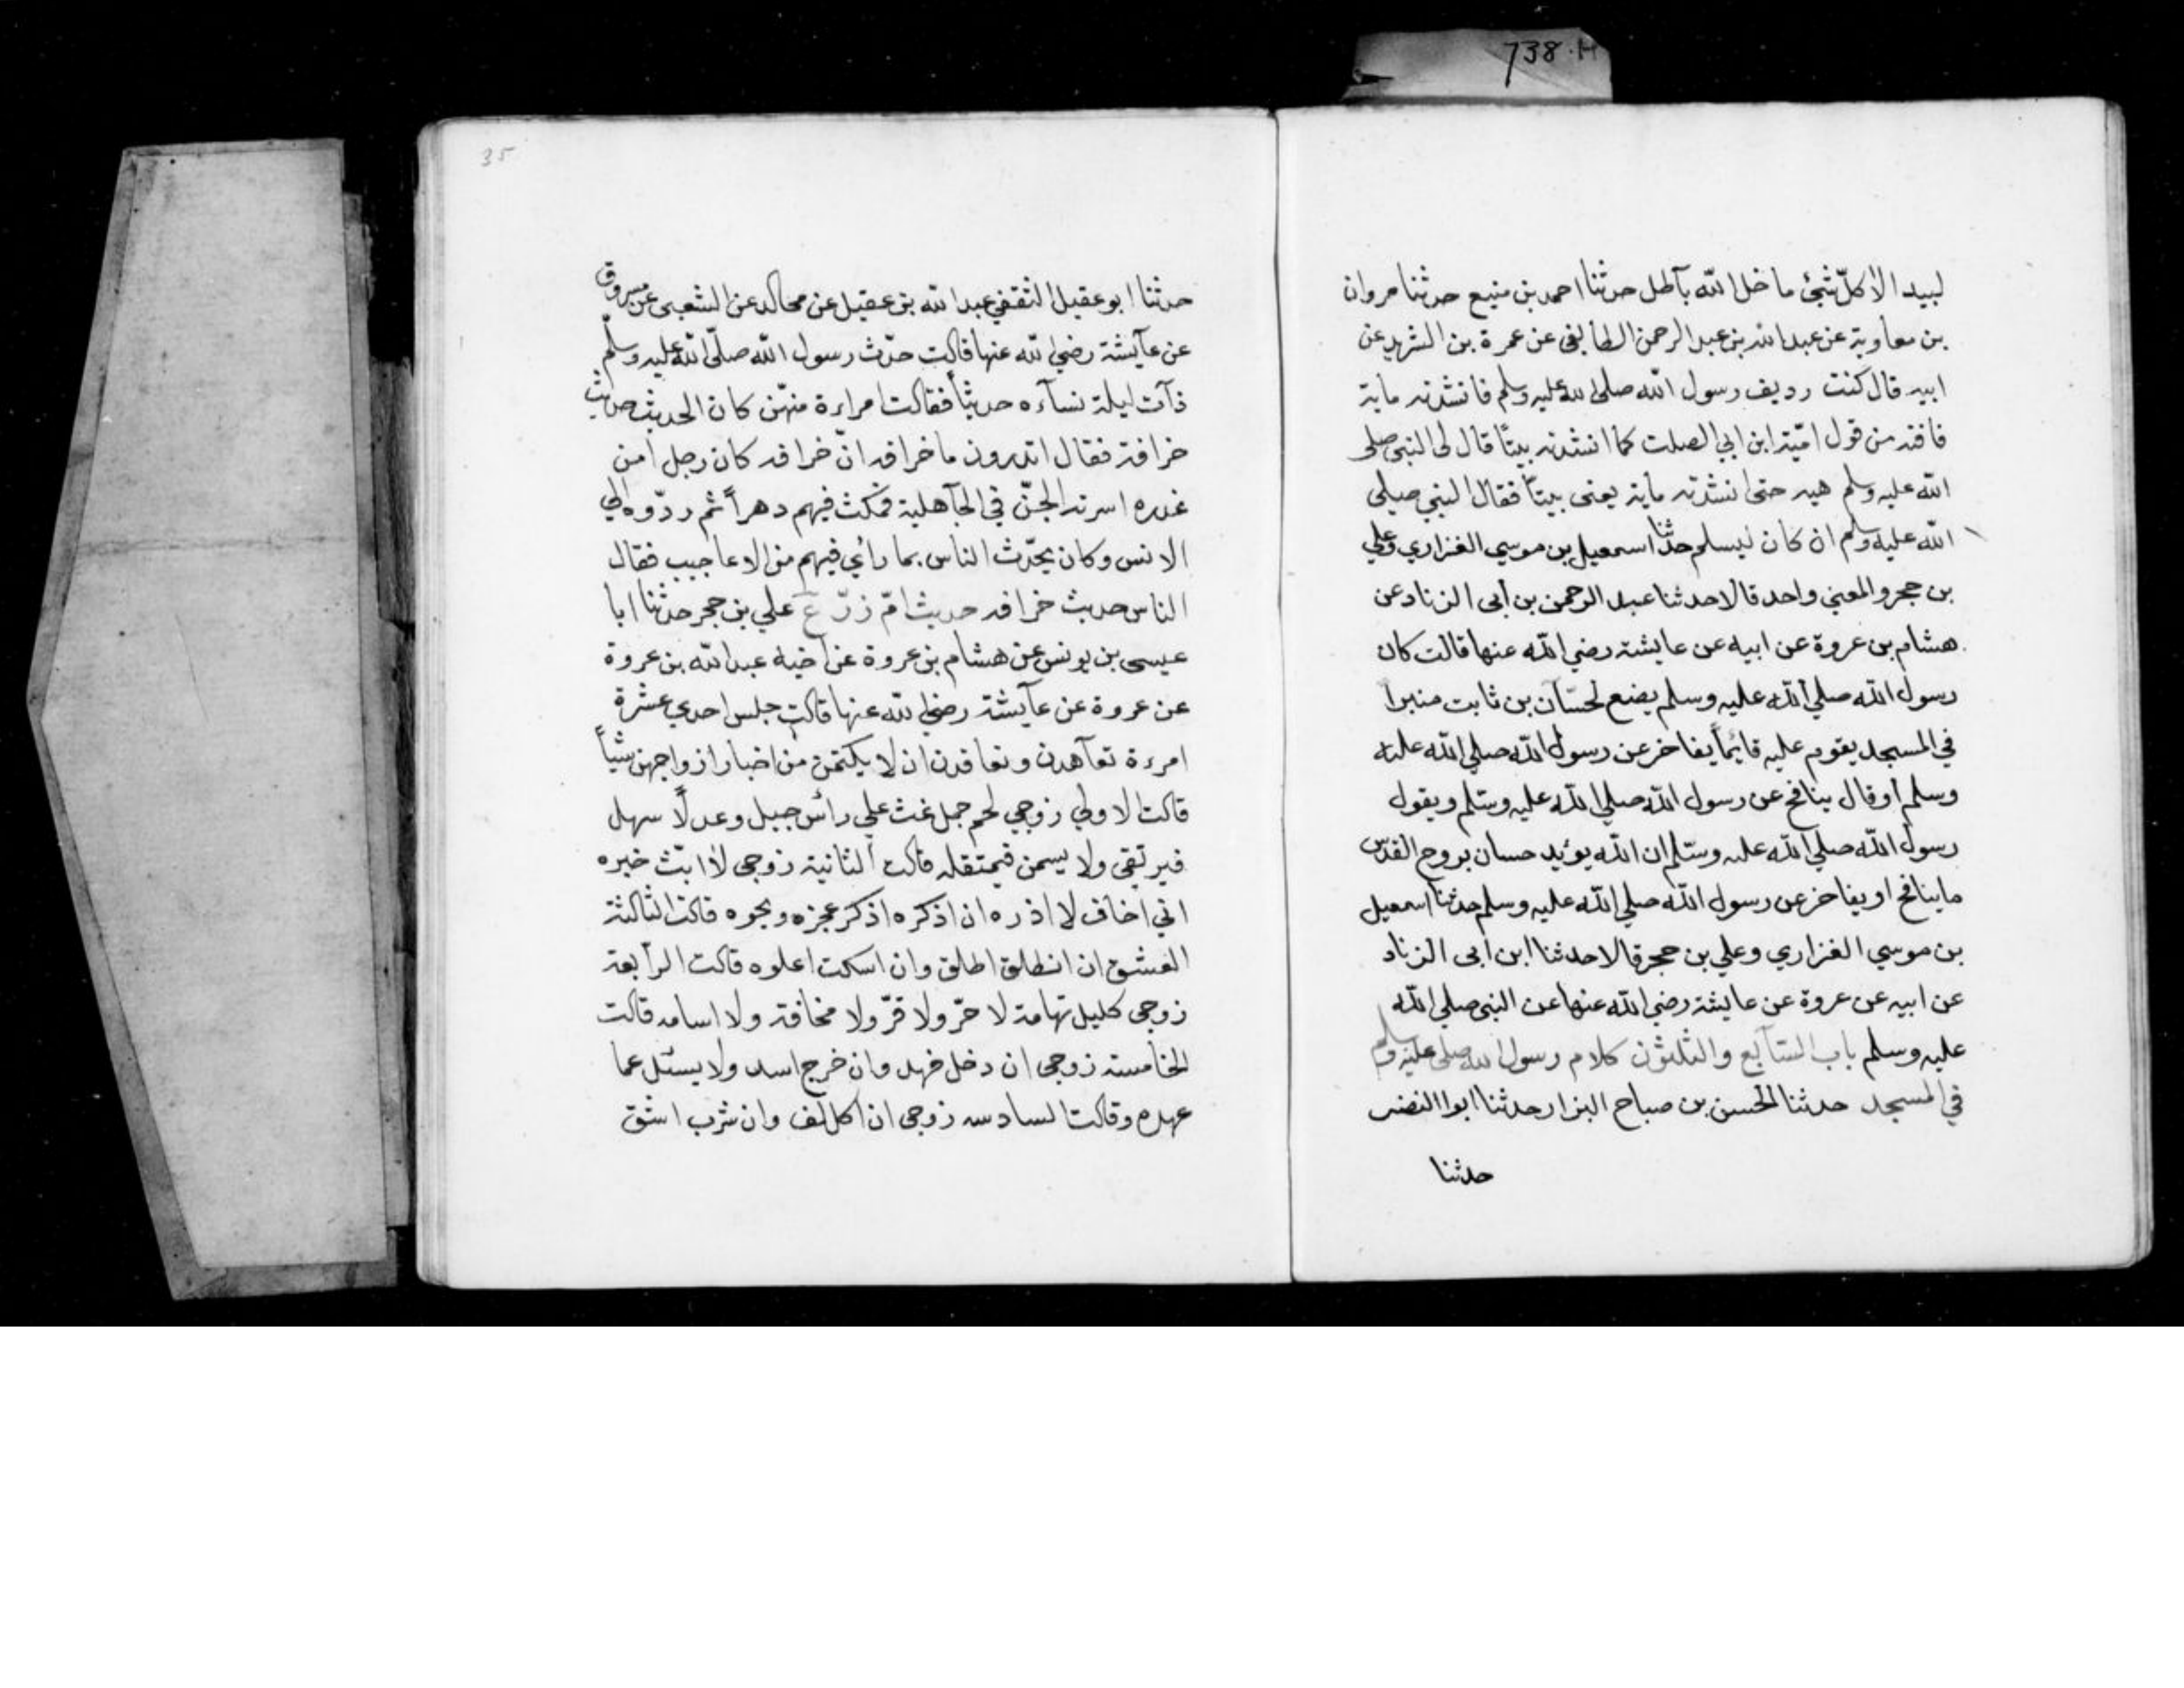 738.H
لبيد الا كلّ شئ ما خلا الله بآطل حدثنا احمد بن منيع حدثنا مروان
بن معاوية عن عبد الله بن عبد الرحمن الطايفي عن عمرة بن الشريد عن
ابيه قال كنت رديف رسول الله صلى الله عليه وسلم فانشدته ماية
قافة من قول اميّة ابن ابي الصلت كما انشدته بيتًا قال لى النبى صلى
الله عليه وسلم هيه حتى انشدته ماية يعنى بيتًا فقال النبي صلي
الله عليه وسلم ان كان ليسلم حدثنا اسمعيل بن موسي الفزاري وعلي
بن حجر والمعني واحد قالا حدثنا عبد الرحمن بن أبى الزناد عن
هشام بن عروة عن ابيه عن عايشة رضي الله عنها قالت كان
رسول الله صلي الله عليه وسلم يضع لحسّان بن ثابت منبرا
في المسجد يقوم عليه قايمًا يفاخر عن رسول الله صلي الله عليه
وسلم او قال ينافح عن رسول الله صلي الله عليه وسلم ويقول
رسول الله صلي الله عليه وسلم ان الله يؤيد حسان بروح القدس
ما ينافح او يفاخر عن رسول الله صلي الله عليه وسلم حدثنا اسمعيل
بن موسي الفزاري وعلي بن حجر قالا حدثنا ابن ابى الزناد
عن ابيه عن عروة عن عايشة رضي الله عنها عن النبى صلي الله
عليه وسلم باب السّابع والثلثون كلام رسول الله صلى عليه وسلم
في المسجد حدثنا الحسن بن صباح البزار حدثنا ابوا النضر
حدثنا
35
حدثنا ابو عقيل الثقفي عبد الله بن عقيل عن مجالد عن الشعبى عن مسروق
عن عآيشة رضي الله عنها قالت حدّث رسول الله صلّى الله عليه وسلّم
ذآت ليلة نسآءه حديثاً فقالت امراءة منهّن كان الحديث حديث
خرافة فقال اتدرون ما خرافه انّ خرافه كان رجل امن
عذره اسرته الجنّ في الجآهلية فمكث فيهم دهراً ثم ردّوه الي
الانس وكان يحدّث الناس بما رائي فيهم من الاعاجيب فقال
الناس حديث خرافه حديث امّ زرّع علي بن حجر حدثنا ابا
عيسى بن يونس عن هشام بن عروة عن اخيه عبد الله بن عروة
عن عروة عن عآيشة رضي الله عنها قالت جلس احدي عشرة
امرءة تعآهدن وتعاقدن ان لا يكتمن من اخبار ازواجهن شيًاً
قالت الاولي زوجي لحم جمل غث علي رأس جبيل وعر لاً سهل
فيرتقي ولا يسمن فيمتقله قالت الثانية زوجى لا ابثّ خبره
اني اخاف لا اذره ان اذكره اذكر عجزه وبجوه قالت الثالثة
العشق ان انطلق اطلق وان اسكت اعلوه قالت الرآبعة
زوجى كليل تهامة لا حرّ ولا قرّ ولا مخافة ولا اسامه قالت
الخامسة زوجى ان دخل فهد وان خرج اسد ولا يسئل عما
عهده وقالت السادسه زوجى ان اكل لف وان شرب اشتق